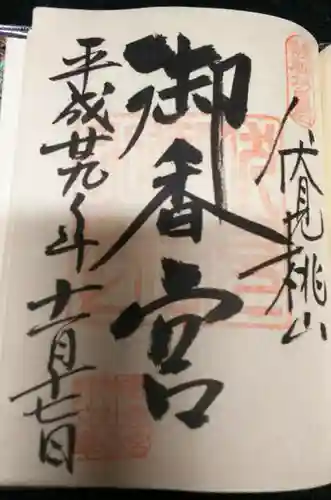 伏見桃山
御香宮
平成廿九年十一月十七日